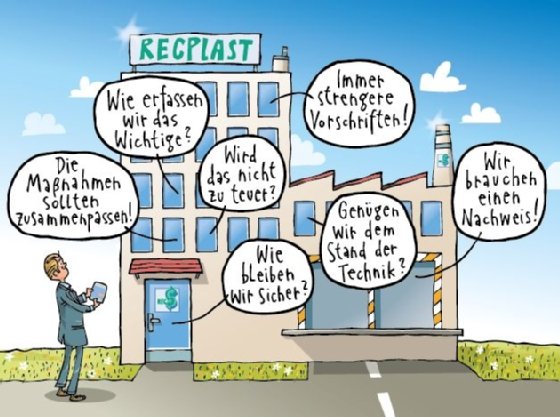 RECPLAST
Immer
strengere
Vorschriften!
Wie erfassen
wir das
Wichtige?
Die
Maßnahmen
sollten
zusammenpassen!
Wird
das nicht
zu teuer?
Wir
brauchen
einen
Nachweis!
Genügen
wir dem
Stand der
Technik?
Wie
bleiben
wir sicher?